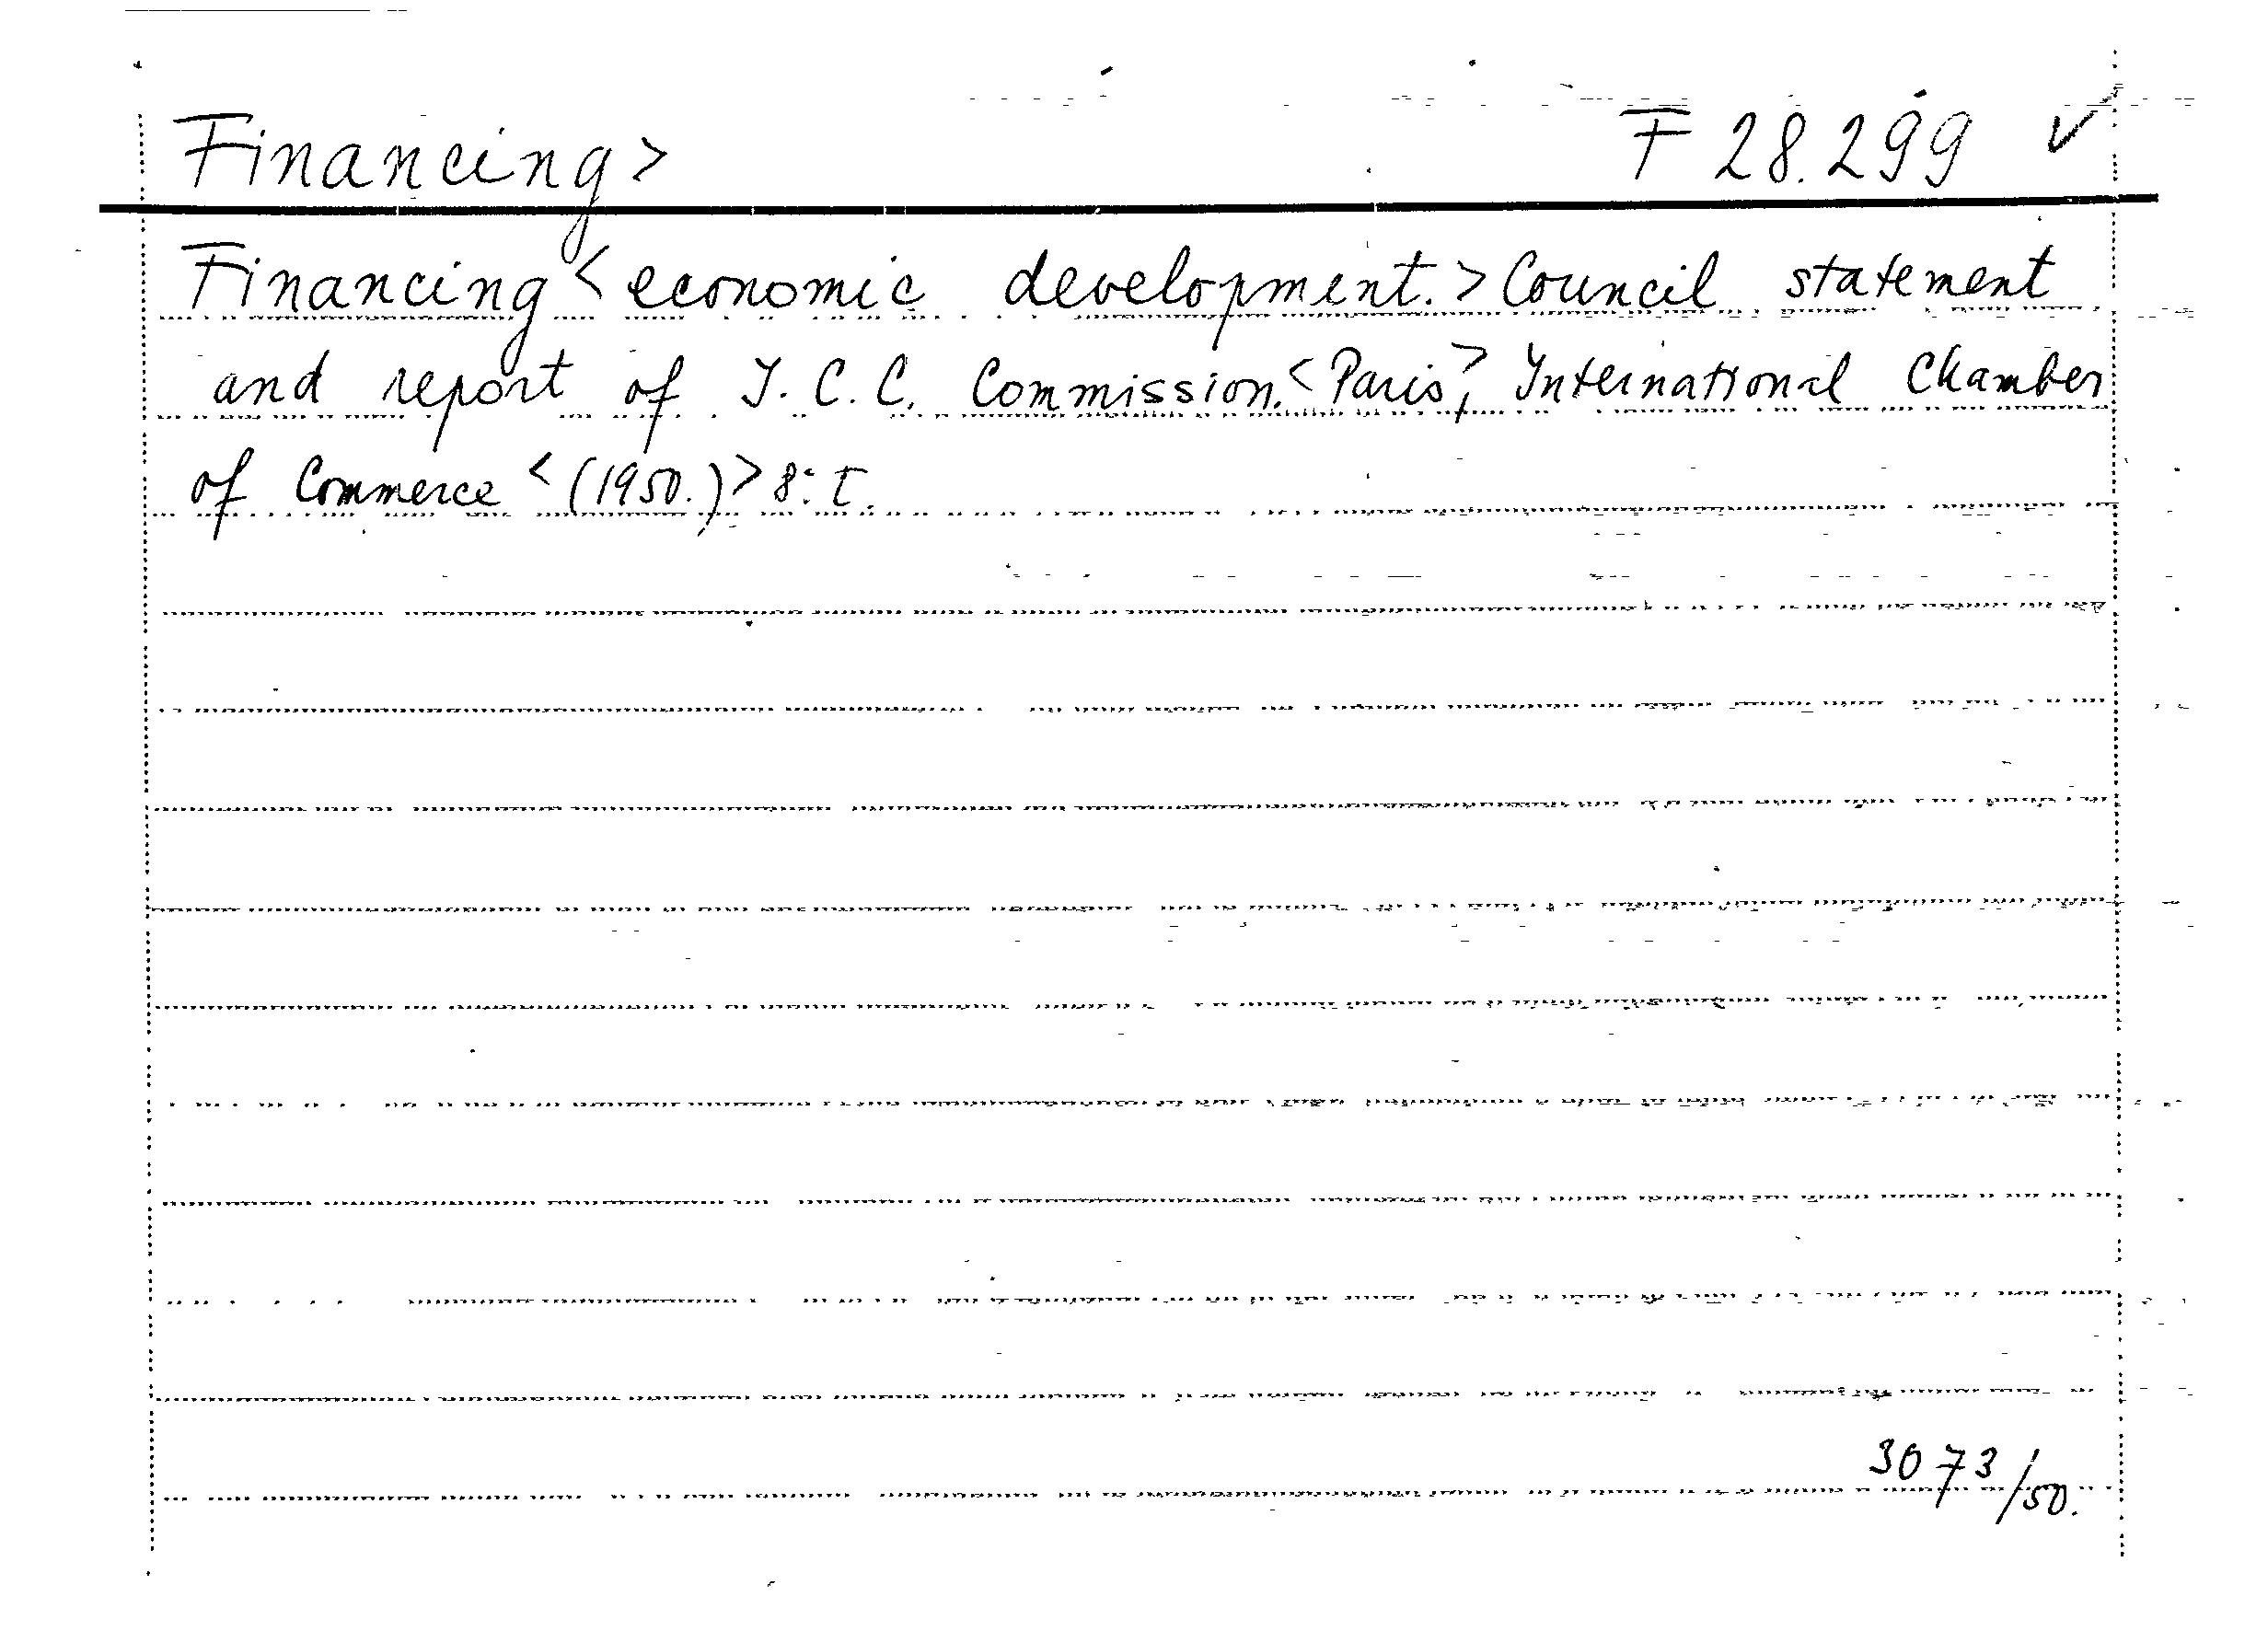 Financing> F 28.299 ✓
Financing <economic development.> Council statement
and report of I. C. C. Commission. <Paris>, International Chamber
of Commerce <(1950.)> 8: t.
3073/50.